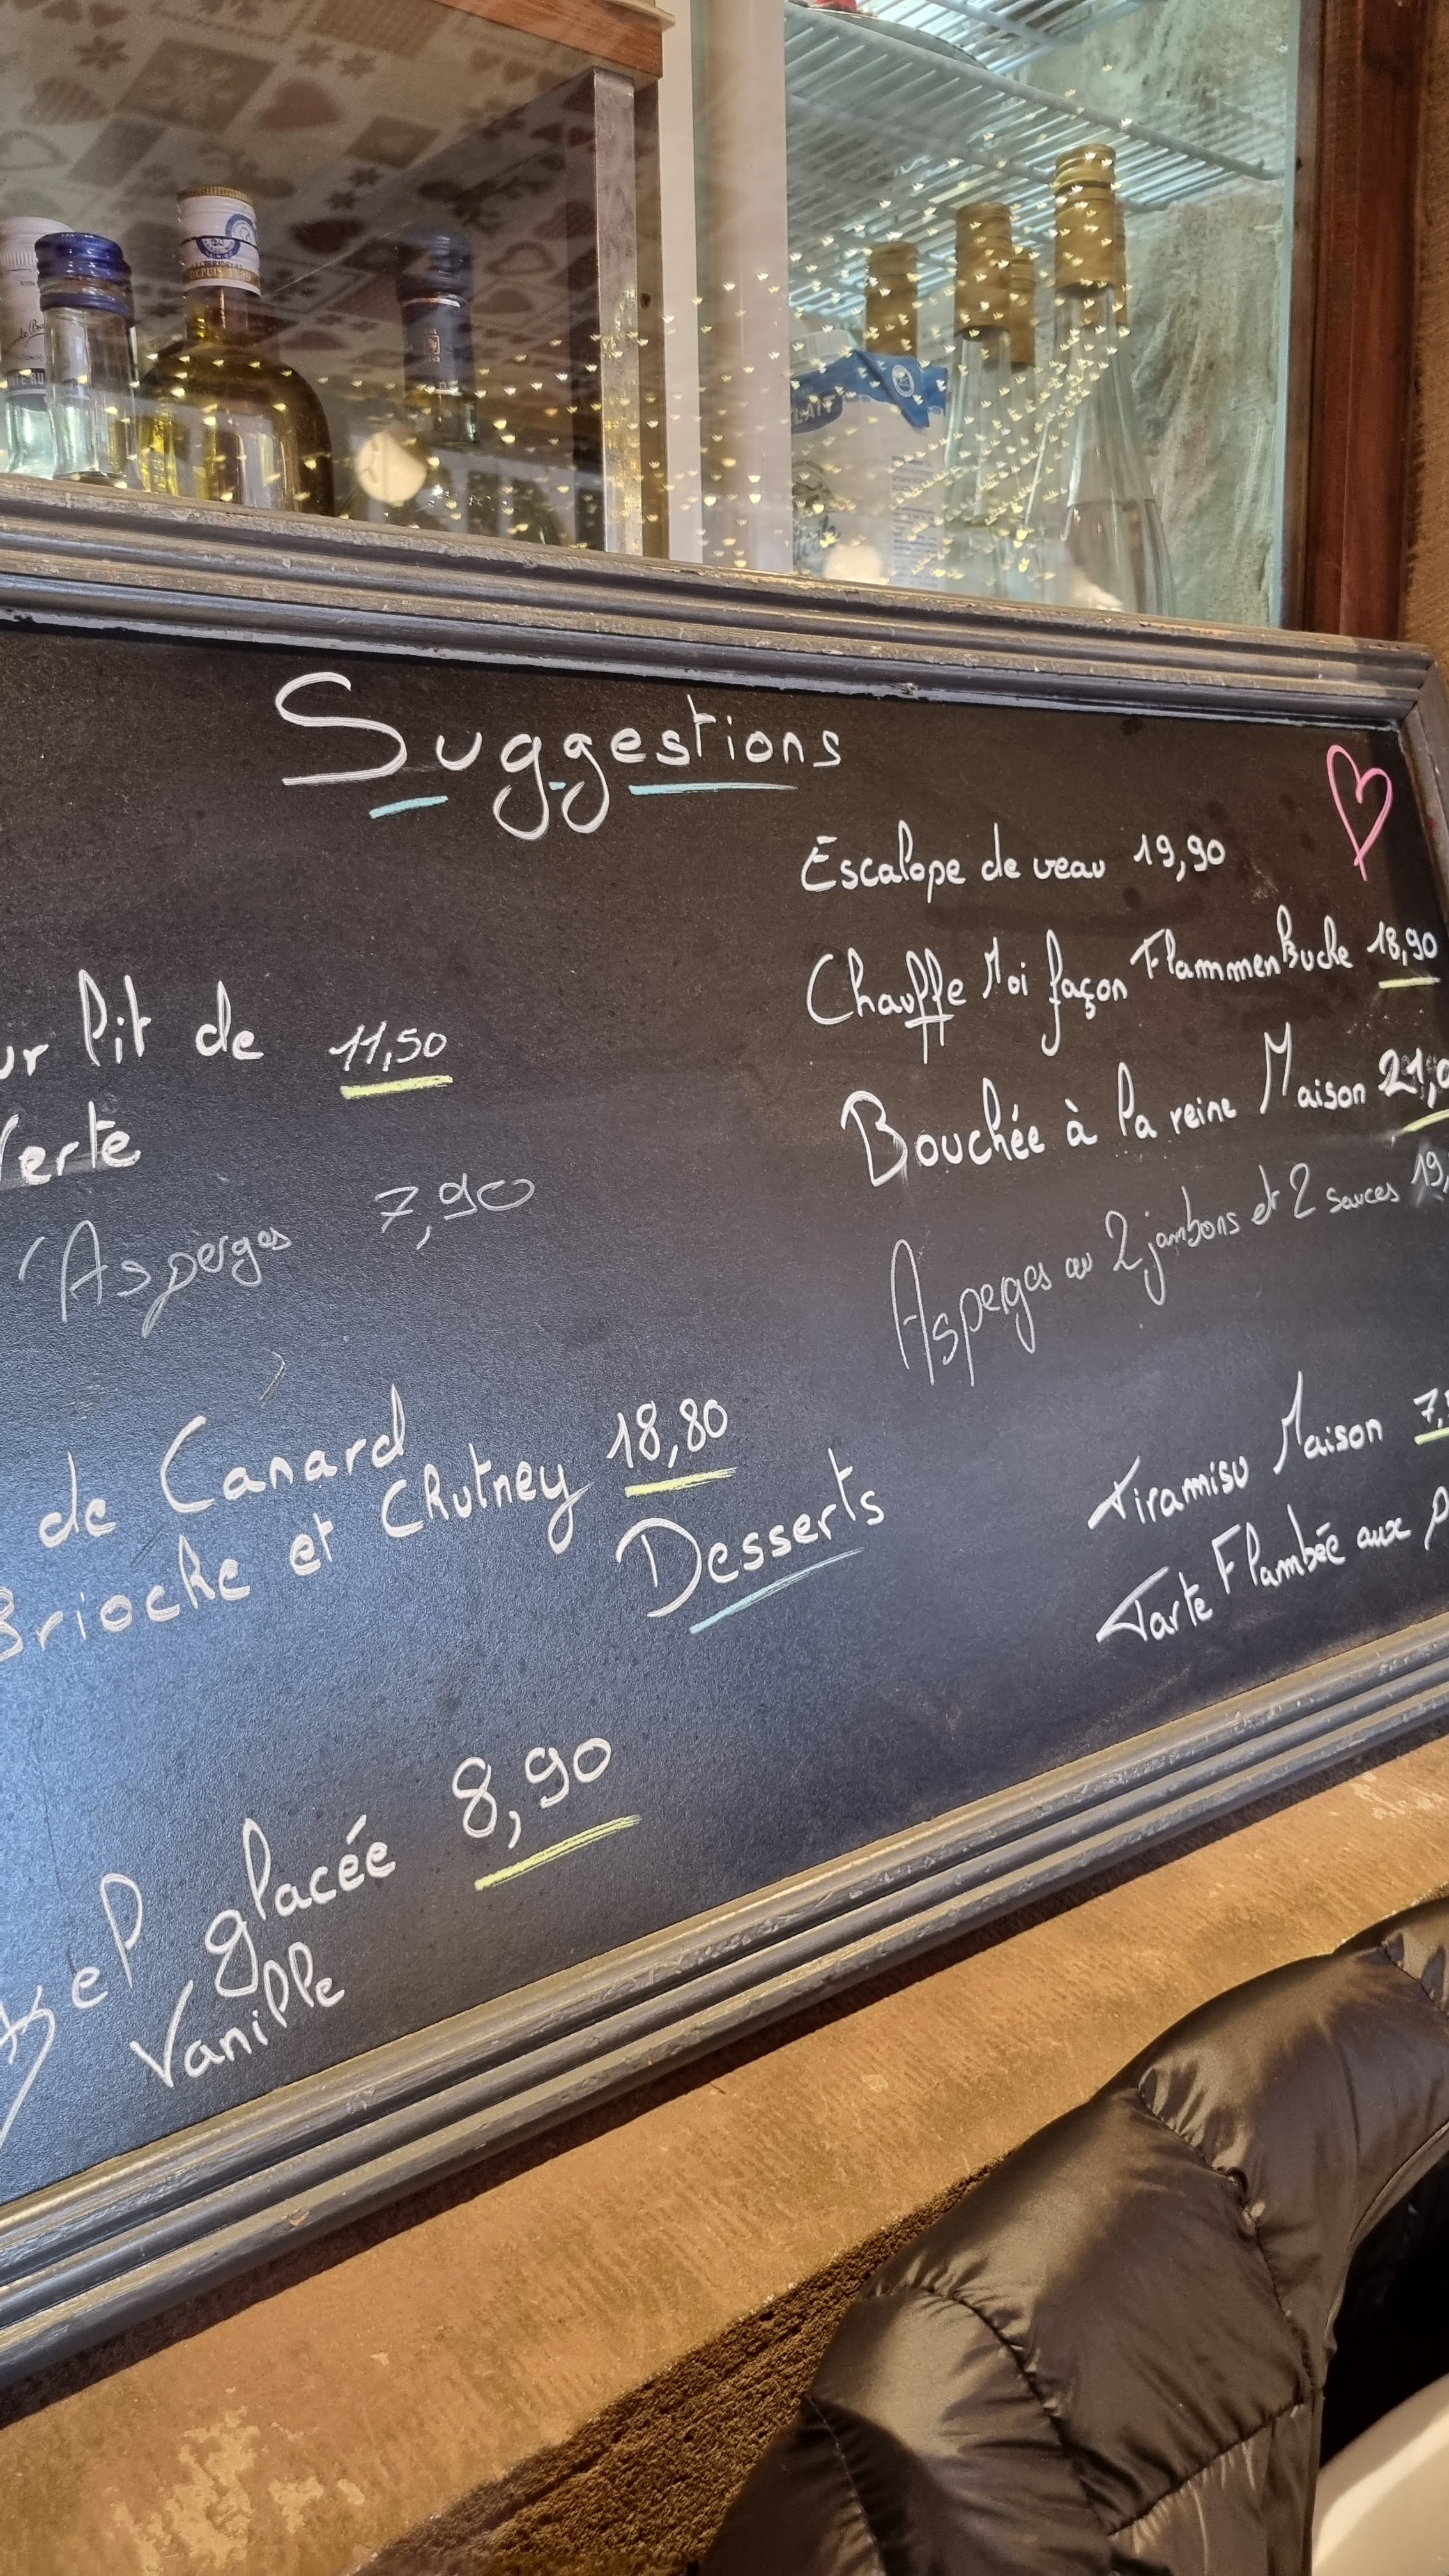 DEPUIS
LAIT
Suggestions
Escalope de veau 19,90
Chauffe Moi façon FlammenKuche 18,90
Bouchée à la reine Maison 21,
Asperges au 2 jambons et 2 sauces 19,
lit de 11,50
Verte
Asperges 7,90
de Canard
Brioche et Chutney 18,80
Desserts
Tiramisu Maison 7,
Tarte Flambée aux
glacée 8,90
Vanille